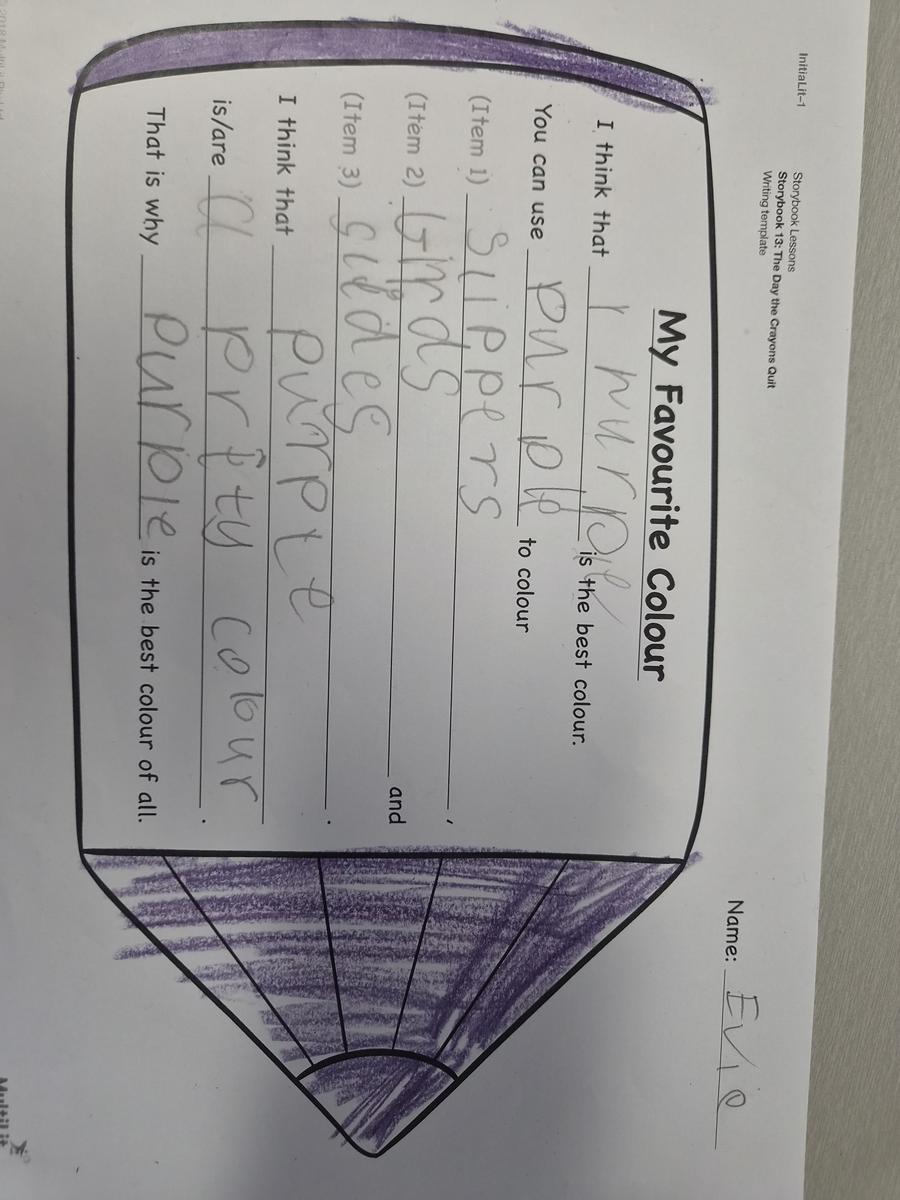 InitiaLit–1
Storybook Lessons
Storybook 13: The Day the Crayons Quit
Writing template
Name: Evie
My Favourite Colour
I think that I nurple is the best colour.
You can use purple to colour
(Item 1) slippers,
(Item 2) and
(Item 3) .
I think that purple
is/are a prity colour.
That is why purple is the best colour of all.
MultiLit